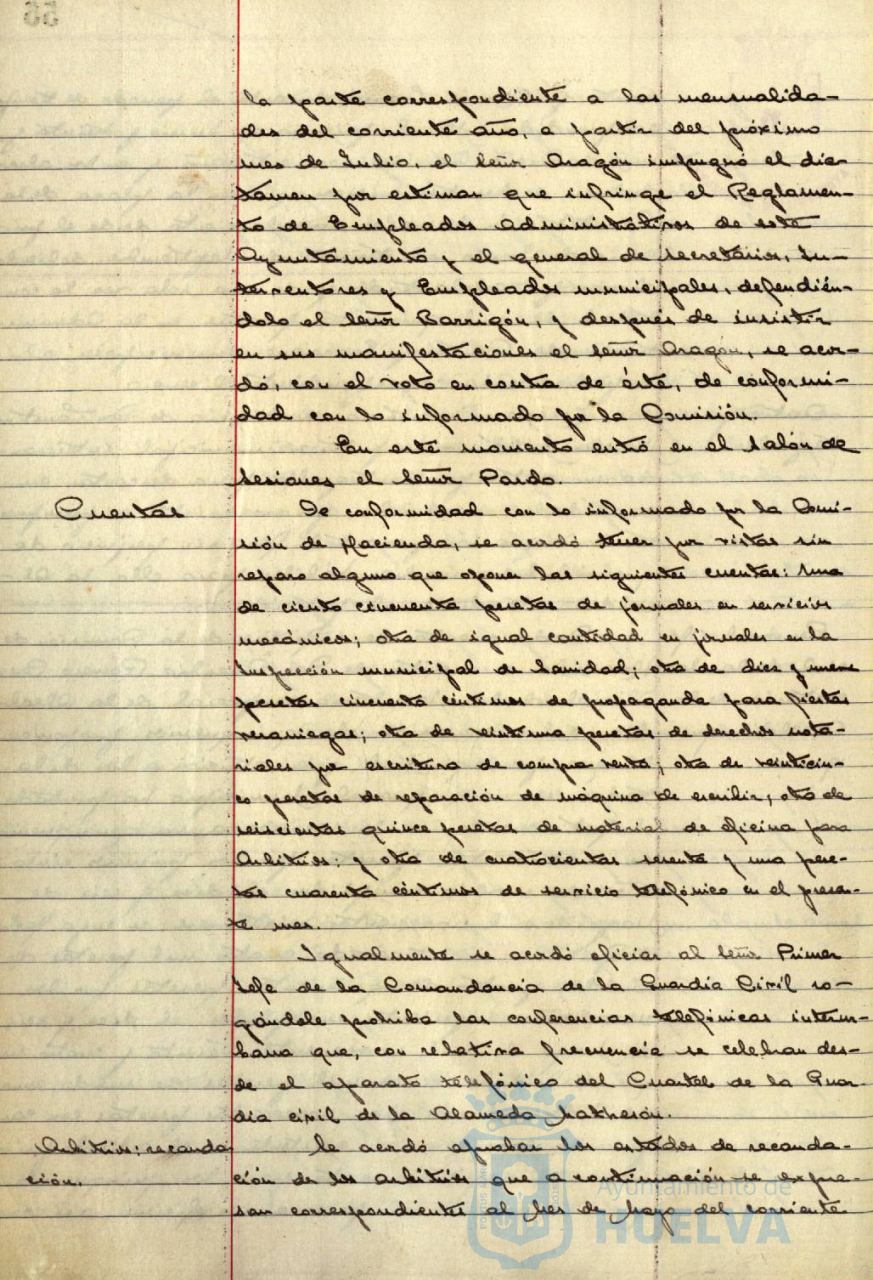 la parte correspondiente a las mensualida-
des del corriente año, a partir del próximo
mes de Julio, el Señor Aragón impugnó el dic-
tamen por estimar que infringe el Reglamen-
to de Empleados Administrativos de este
Ayuntamiento y el general de Secretarios, In-
terventores y Empleados municipales, defendién-
dolo el Señor Barrigón, y después de insistir
en sus manifestaciones el Señor Aragón, se acor-
dó, con el voto en contra de éste, de conformi-
dad con lo informado por la Comisión.
En este momento entró en el Salón de
Sesiones el Señor Pardo.
Cuentas
De conformidad con lo informado por la Comi-
sión de Hacienda, se acordó tener por vistas sin
reparo alguno que oponer las siguientes cuentas: Una
de ciento cincuenta pesetas de jornales en servicios
mecánicos; otra de igual cantidad en jornales en la
Inspección municipal de Sanidad; otra de diez y nueve
pesetas cincuenta céntimos de propaganda para fiestas
veraniegas; otra de veintiuna pesetas de derechos nota-
riales por escritura de compra venta; otra de veinticin-
co pesetas de reparación de máquina de escribir; otra de
seiscientas quince pesetas de material de oficina para
Arbitrios; y otra de cuatrocientas sesenta y una pese-
tas cuarenta céntimos de servicio telefónico en el presen-
te mes.
Igualmente se acordó oficiar al Señor Primer
Jefe de la Comandancia de la Guardia Civil ro-
gándole prohiba las conferencias telefónicas interur-
bana que, con relativa frecuencia se celebran des-
de el aparato telefónico del Cuartel de la Guar-
dia civil de la Alameda Sundheim.
Arbitrios: recauda-
ción.
Se acordó aprobar los estados de recauda-
ción de los arbitrios que a continuación se expre-
san correspondientes al mes de Mayo del corriente
Ayuntamiento de
HUELVA